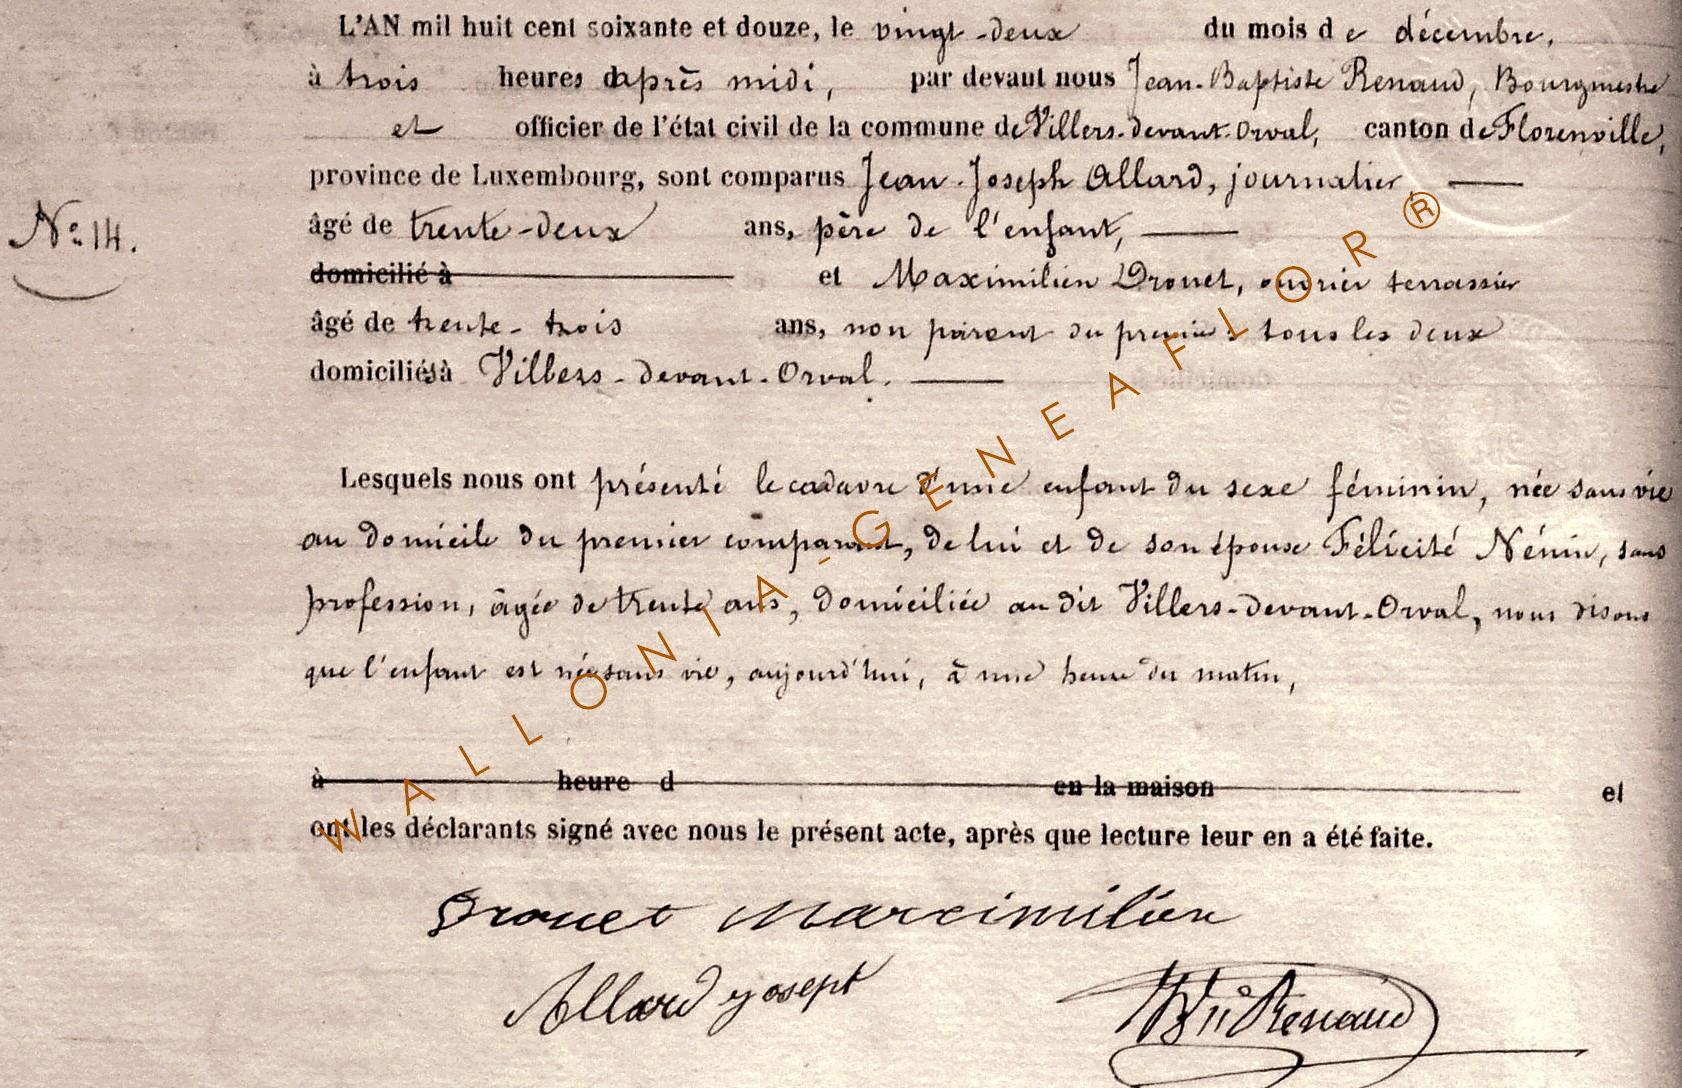 L'AN mil huit cent soixante et douze, le vingt-deux du mois de décembre,
à trois heures d'après midi, par devant nous Jean-Baptiste Renaud, Bourgmestre
et officier de l'état civil de la commune de Villers-devant-Orval, canton de Florenville,
province de Luxembourg, sont comparus Jean-Joseph Allard, journalier,
N° 14.
âgé de trente-deux ans, père de l'enfant,
domicilié à et Maximilien Drouet, ouvrier terrassier
âgé de trente-trois ans, non parent du premier: tous les deux
domiciliés à Villers-devant-Orval.
Lesquels nous ont présenté le cadavre d'une enfant du sexe féminin, née sans vie
au domicile du premier comparant, de lui et de son épouse Félicité Nénin, sans
profession, âgée de trente ans, domiciliée au dit Villers-devant-Orval, nous disons
que l'enfant est née sans vie, aujourd'hui, à une heure du matin,
à heure d en la maison et
ont les déclarants signé avec nous le présent acte, après que lecture leur en a été faite.
Drouet Marximilien
Allard yosept
Renaud
WALLONIA-GENEAFLOR®